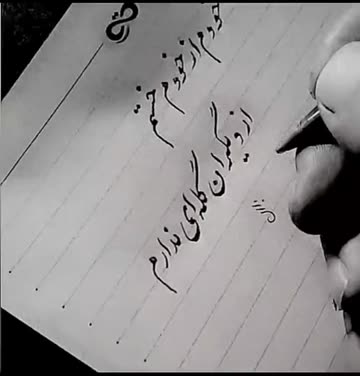 خودم از خودم خستم
از دیگران گله‌ای ندارم